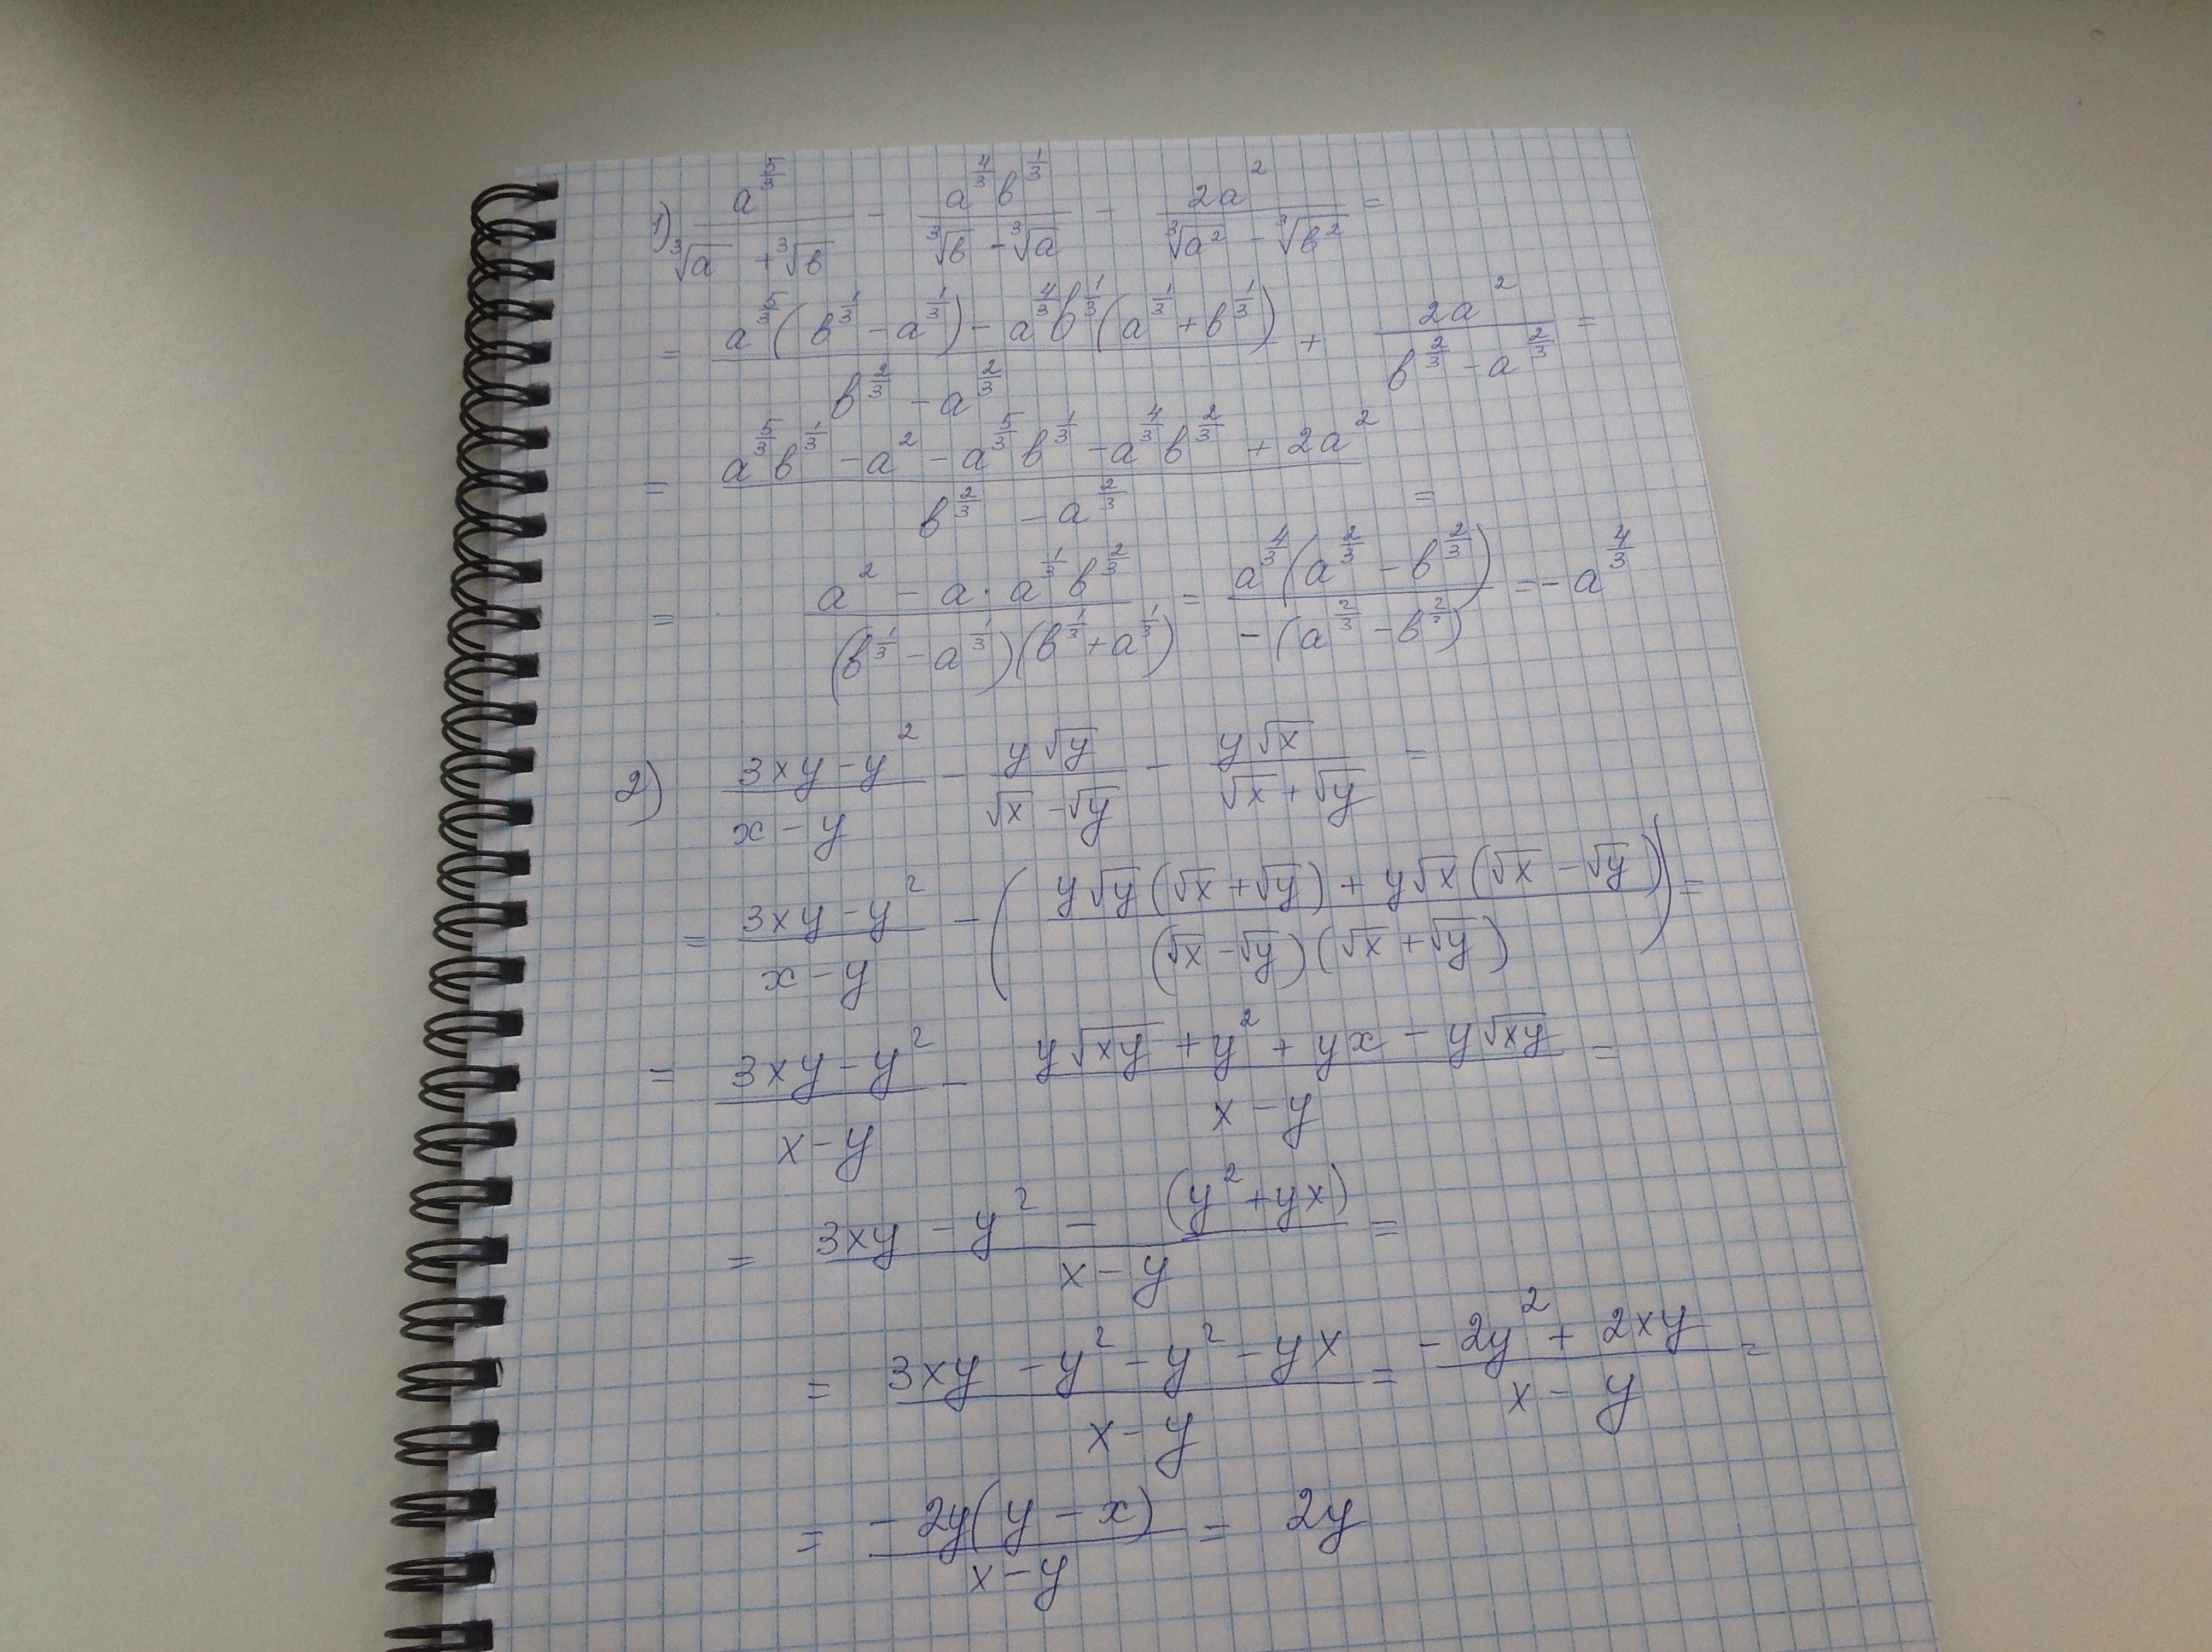 1) a^(5/3)/(∛a + ∛в) - a^(4/3)в^(1/3)/(∛в - ∛a) - 2a²/(∛a² - ∛в²) =
= (a^(5/3)(в^(1/3) - a^(1/3)) - a^(4/3)в^(1/3)(a^(1/3) + в^(1/3)))/(в^(2/3) - a^(2/3)) + 2a²/(в^(2/3) - a^(2/3)) =
= (a^(5/3)в^(1/3) - a² - a^(5/3)в^(1/3) - a^(4/3)в^(2/3) + 2a²)/(в^(2/3) - a^(2/3)) =
= (a² - a·a^(1/3)в^(2/3))/((в^(1/3) - a^(1/3))(в^(1/3) + a^(1/3))) = a^(4/3)(a^(2/3) - в^(2/3))/(-(a^(2/3) - в^(2/3))) = -a^(4/3)
2) (3xy - y²)/(x - y) - y√y/(√x - √y) - y√x/(√x + √y) =
= (3xy - y²)/(x - y) - ((y√y(√x + √y) + y√x(√x - √y))/((√x - √y)(√x + √y))) =
= (3xy - y²)/(x - y) - (y√xy + y² + yx - y√xy)/(x - y) =
= (3xy - y² - (y² + yx))/(x - y) =
= (3xy - y² - y² - yx)/(x - y) = (-2y² + 2xy)/(x - y) =
= -2y(y - x)/(x - y) = 2y